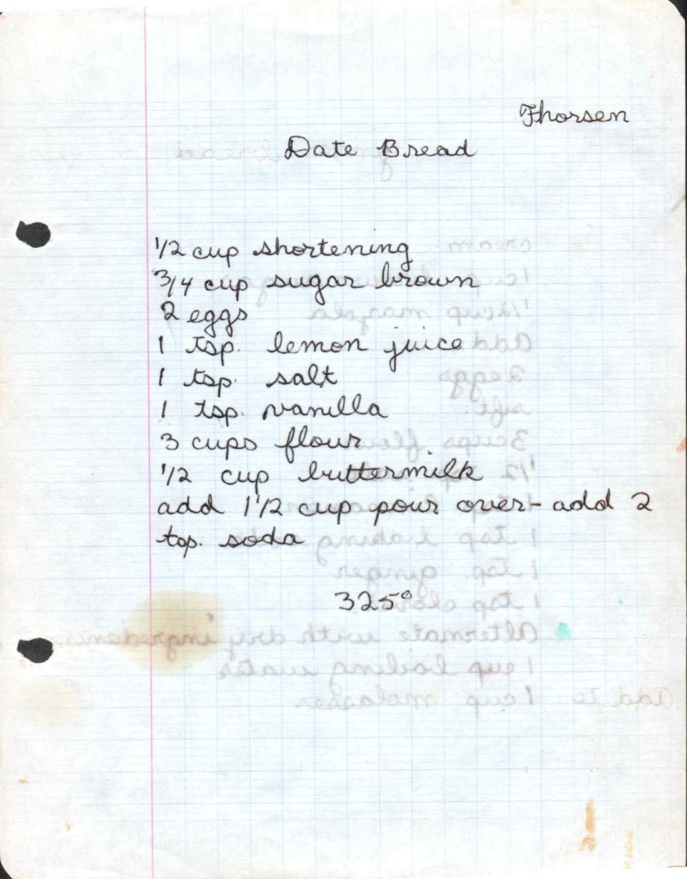 Thorsen
Date Bread
1/2 cup shortening
3/4 cup sugar brown
2 eggs
1 tsp. lemon juice
1 tsp. salt
1 tsp. vanilla
3 cups flour
1/2 cup buttermilk
add 1 1/2 cup pour over - add 2
tsp. soda
325°